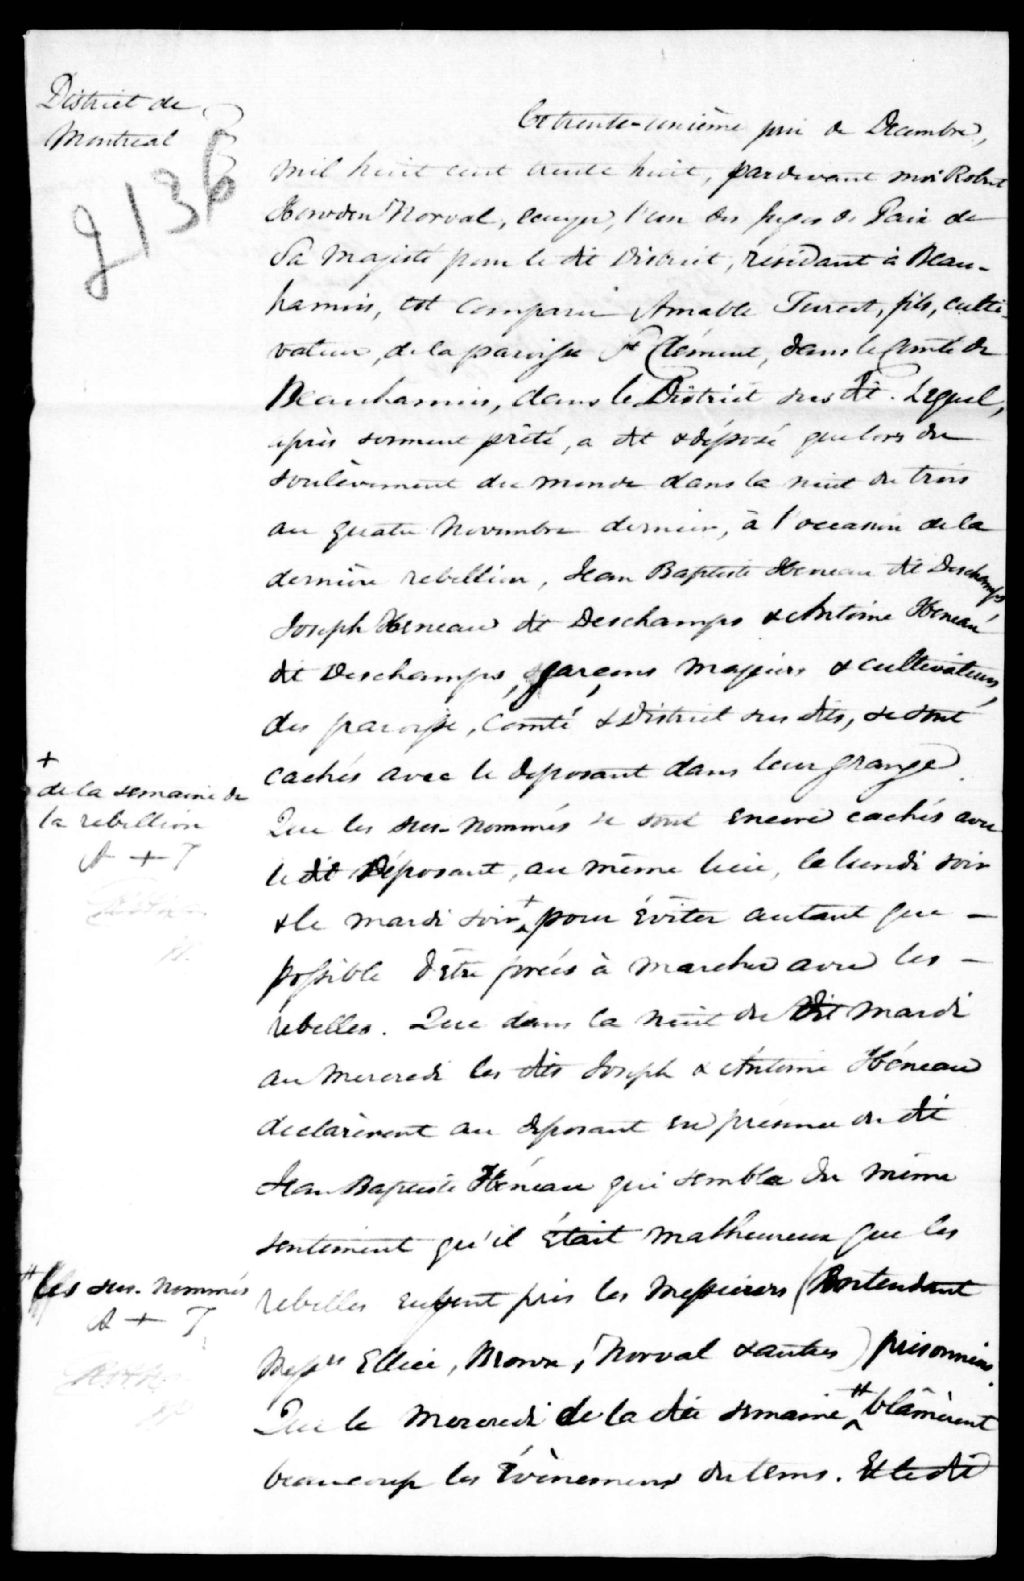 District de
Montreal
g 136
Ce trente-unième jour de Decembre,
mil huit cent trente huit, pardevant moi Robert
Howden Norval, ecuyer, l'un des Juges de Paix de
Sa Majesté pour le dit District, résidant à Beau-
harnois, est comparu Amable Turcot, fils, culti-
vateur, de la paroisse St Clément, dans le Comté de
Beauharnois, dans le District sus dit. Lequel,
après serment prêté, a dit & déposé que lors du
soulèvement du monde dans la nuit du trois
au quatre Novembre dernier, à l'occasion de la
dernière rebellion, Jean Baptiste Heneau dit Deschamps
Joseph Heneau dit Deschamps & Antoine Heneau
dit Deschamps, garçons majeurs & cultivateurs,
des paroisse, Comté & District sus dits, se sont
cachés avec le deposant dans leur grange.
Que les sus-nommés se sont encore cachés avec
le dit Déposant, au même lieu, le lundi soir
& le mardi soir + pour éviter autant que -
possible d'être forcés à marcher avec les -
rebelles. Que dans la nuit du dit mardi
au mercredi les dits Joseph & Antoine Héneau
declarèrent au deposant en présence du dit
Jean Baptiste Héneau qui sembla du même
sentiment qu'il était malheureux que les
rebelles eussent pris les Messieurs (entendant
Messrs Ellice, Brown, Norval & autres) prisonniers.
Que le mercredi de la dite semaine # blâmèrent
beaucoup les évènemens du tems. Et le dit
+
de la semaine de
la rebellion
A + T
# les sus-nommés
A + T